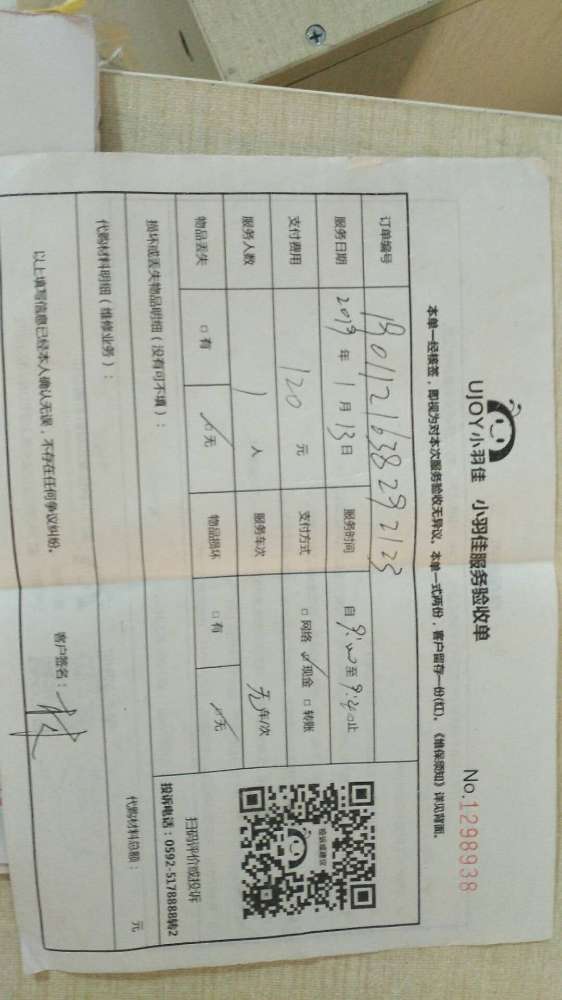 UJOY小羽佳 小羽佳服务验收单
No.1298938
本单一经接签，即视为对本次服务验收无异议。本单一式两份，客户留存一份(红)。《维保须知》详见背面。
订单编号 1901121638292123
服务日期 2019年1月13日 服务时间 自9:00至9:40止
支付费用 120元 支付方式 □网络 ☑现金 □转账
服务人数 1人 服务车次 无车/次
物品丢失 □有 ☑无 物品损坏 □有 ☑无
损坏或丢失物品明细（没有可不填）：
投诉建议
扫码评价或投诉
投诉电话：0592-5178888转2
代购材料明细（维修业务）： 代购材料总额： 元
以上填写信息已经本人确认无误，不存在任何争议纠纷。
客户签名：